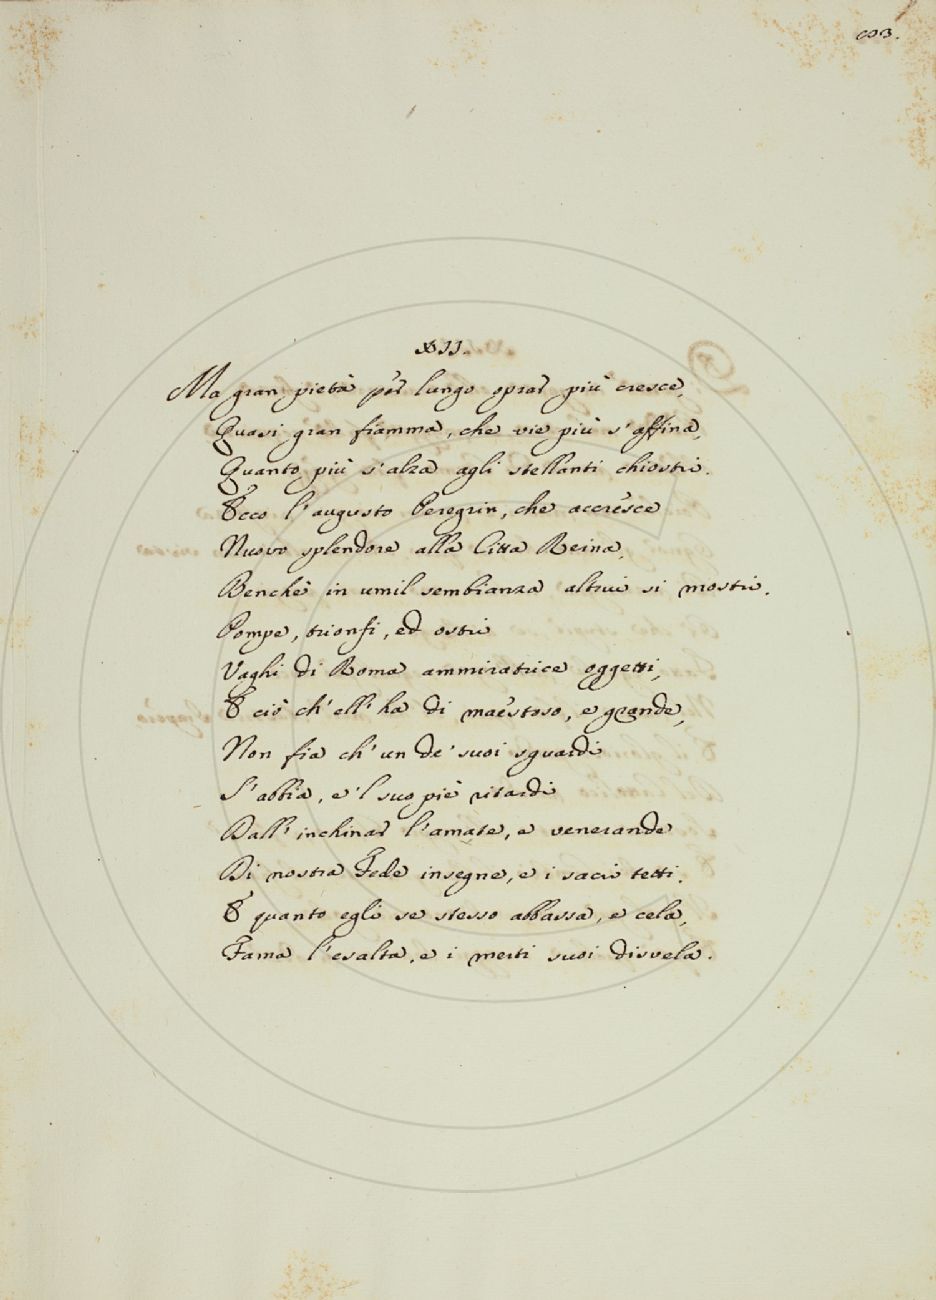 XII.
Ma gran pietà per lungo oprar più cresce,
Quasi gran fiamma, che vie più s'affina,
Quanto più s'alza agli stellanti chiostri.
Ecco l'augusto Peregrin, che accresce
Nuovo splendore alla Città Reina,
Benchè in umil sembianza altrui si mostri.
Pompe, trionfi, ed ostri
Vaghi di Roma ammiratrice oggetti,
E ciò ch'ell'ha di maestoso, e grande,
Non fia ch'un de' suoi sguardi
S'abbia, e'l suo piè ritardi
Dall'inchinar l'amate, e venerande
Di nostra Fede insegne, e i sacri tetti.
E quanto egli se stesso abbassa, e cela,
Fama l'esalta, e i merti suoi disvela.